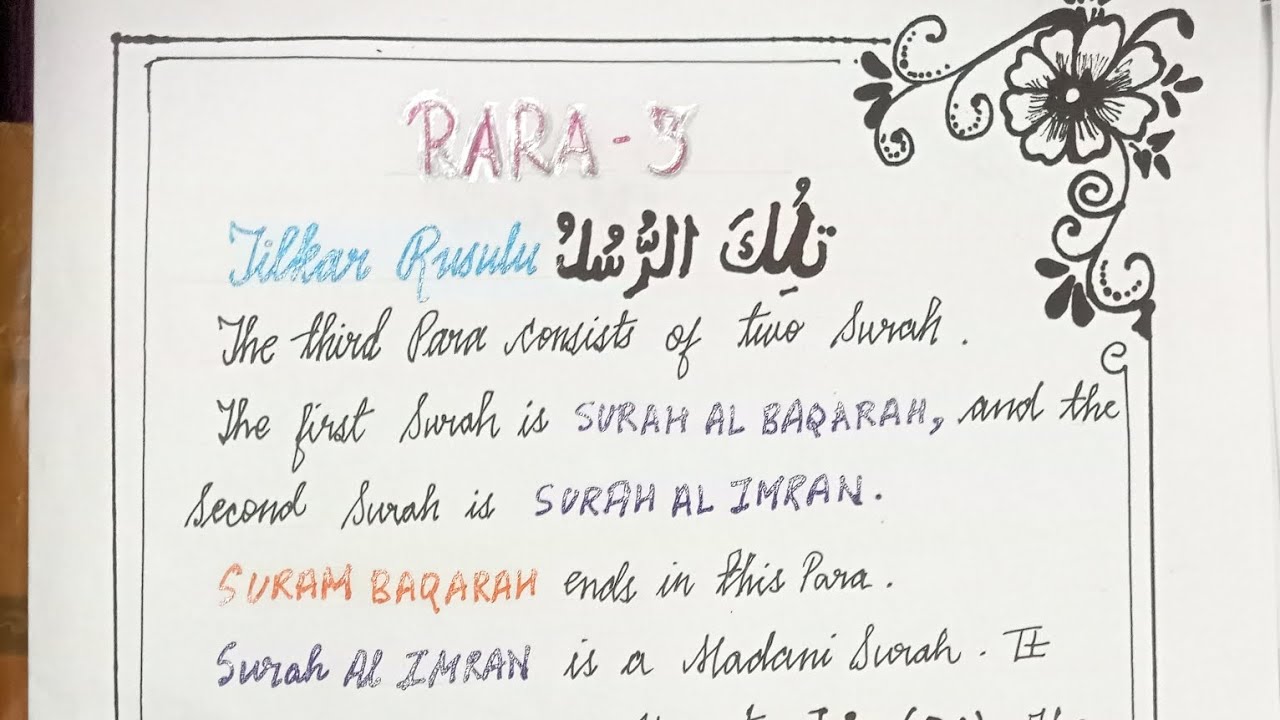 PARA - 3
Tilkar Rusulu تِلْكَ الرُّسُلُ
The third Para consists of two Surah.
The first Surah is SURAH AL BAQARAH, and the
second Surah is SURAH AL IMRAN.
SURAH BAQARAH ends in this Para.
Surah Al IMRAN is a Madani Surah. It